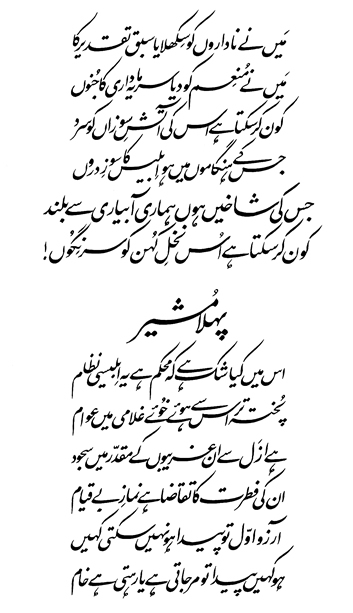 مَیں نے ناداروں کو سِکھلایا سبق تقدیر کا
مَیں نے مُنعِم کو دیا سرمایہ داری کا جُنوں
کون کر سکتا ہے اس کی آتشِ سوزاں کو سرد
جس کے ہنگاموں میں ہو اِبلیس کا سوزِ دروں
جس کی شاخیں ہوں ہماری آبیاری سے بلند
کون کر سکتا ہے اُس نخلِ کُہن کو سرنِگُوں!
پہلا مُشیر
اس میں کیا شک ہے کہ محکم ہے یہ اِبلیسی نظام
پُختہ تر اس سے ہوئے خُوئے غلامی میں عوام
ہے اَزل سے ان غریبوں کے مقدّر میں سجود
ان کی فطرت کا تقاضا ہے نمازِ بے قیام
آرزو اوّل تو پیدا ہو نہیں سکتی کہیں
ہو کہیں پیدا تو مر جاتی ہے یا رہتی ہے خام